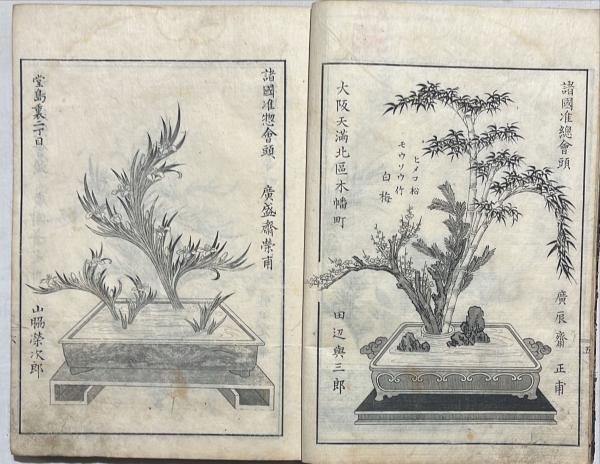 諸國准總會頭
廣辰齋 正甫
ヒメコ松
モウソウ竹
白梅
大阪天満北區木幡町
田辺與三郎
五
諸國准惣會頭
廣盛齋榮甫
堂島裏二丁目
山脇榮次郎